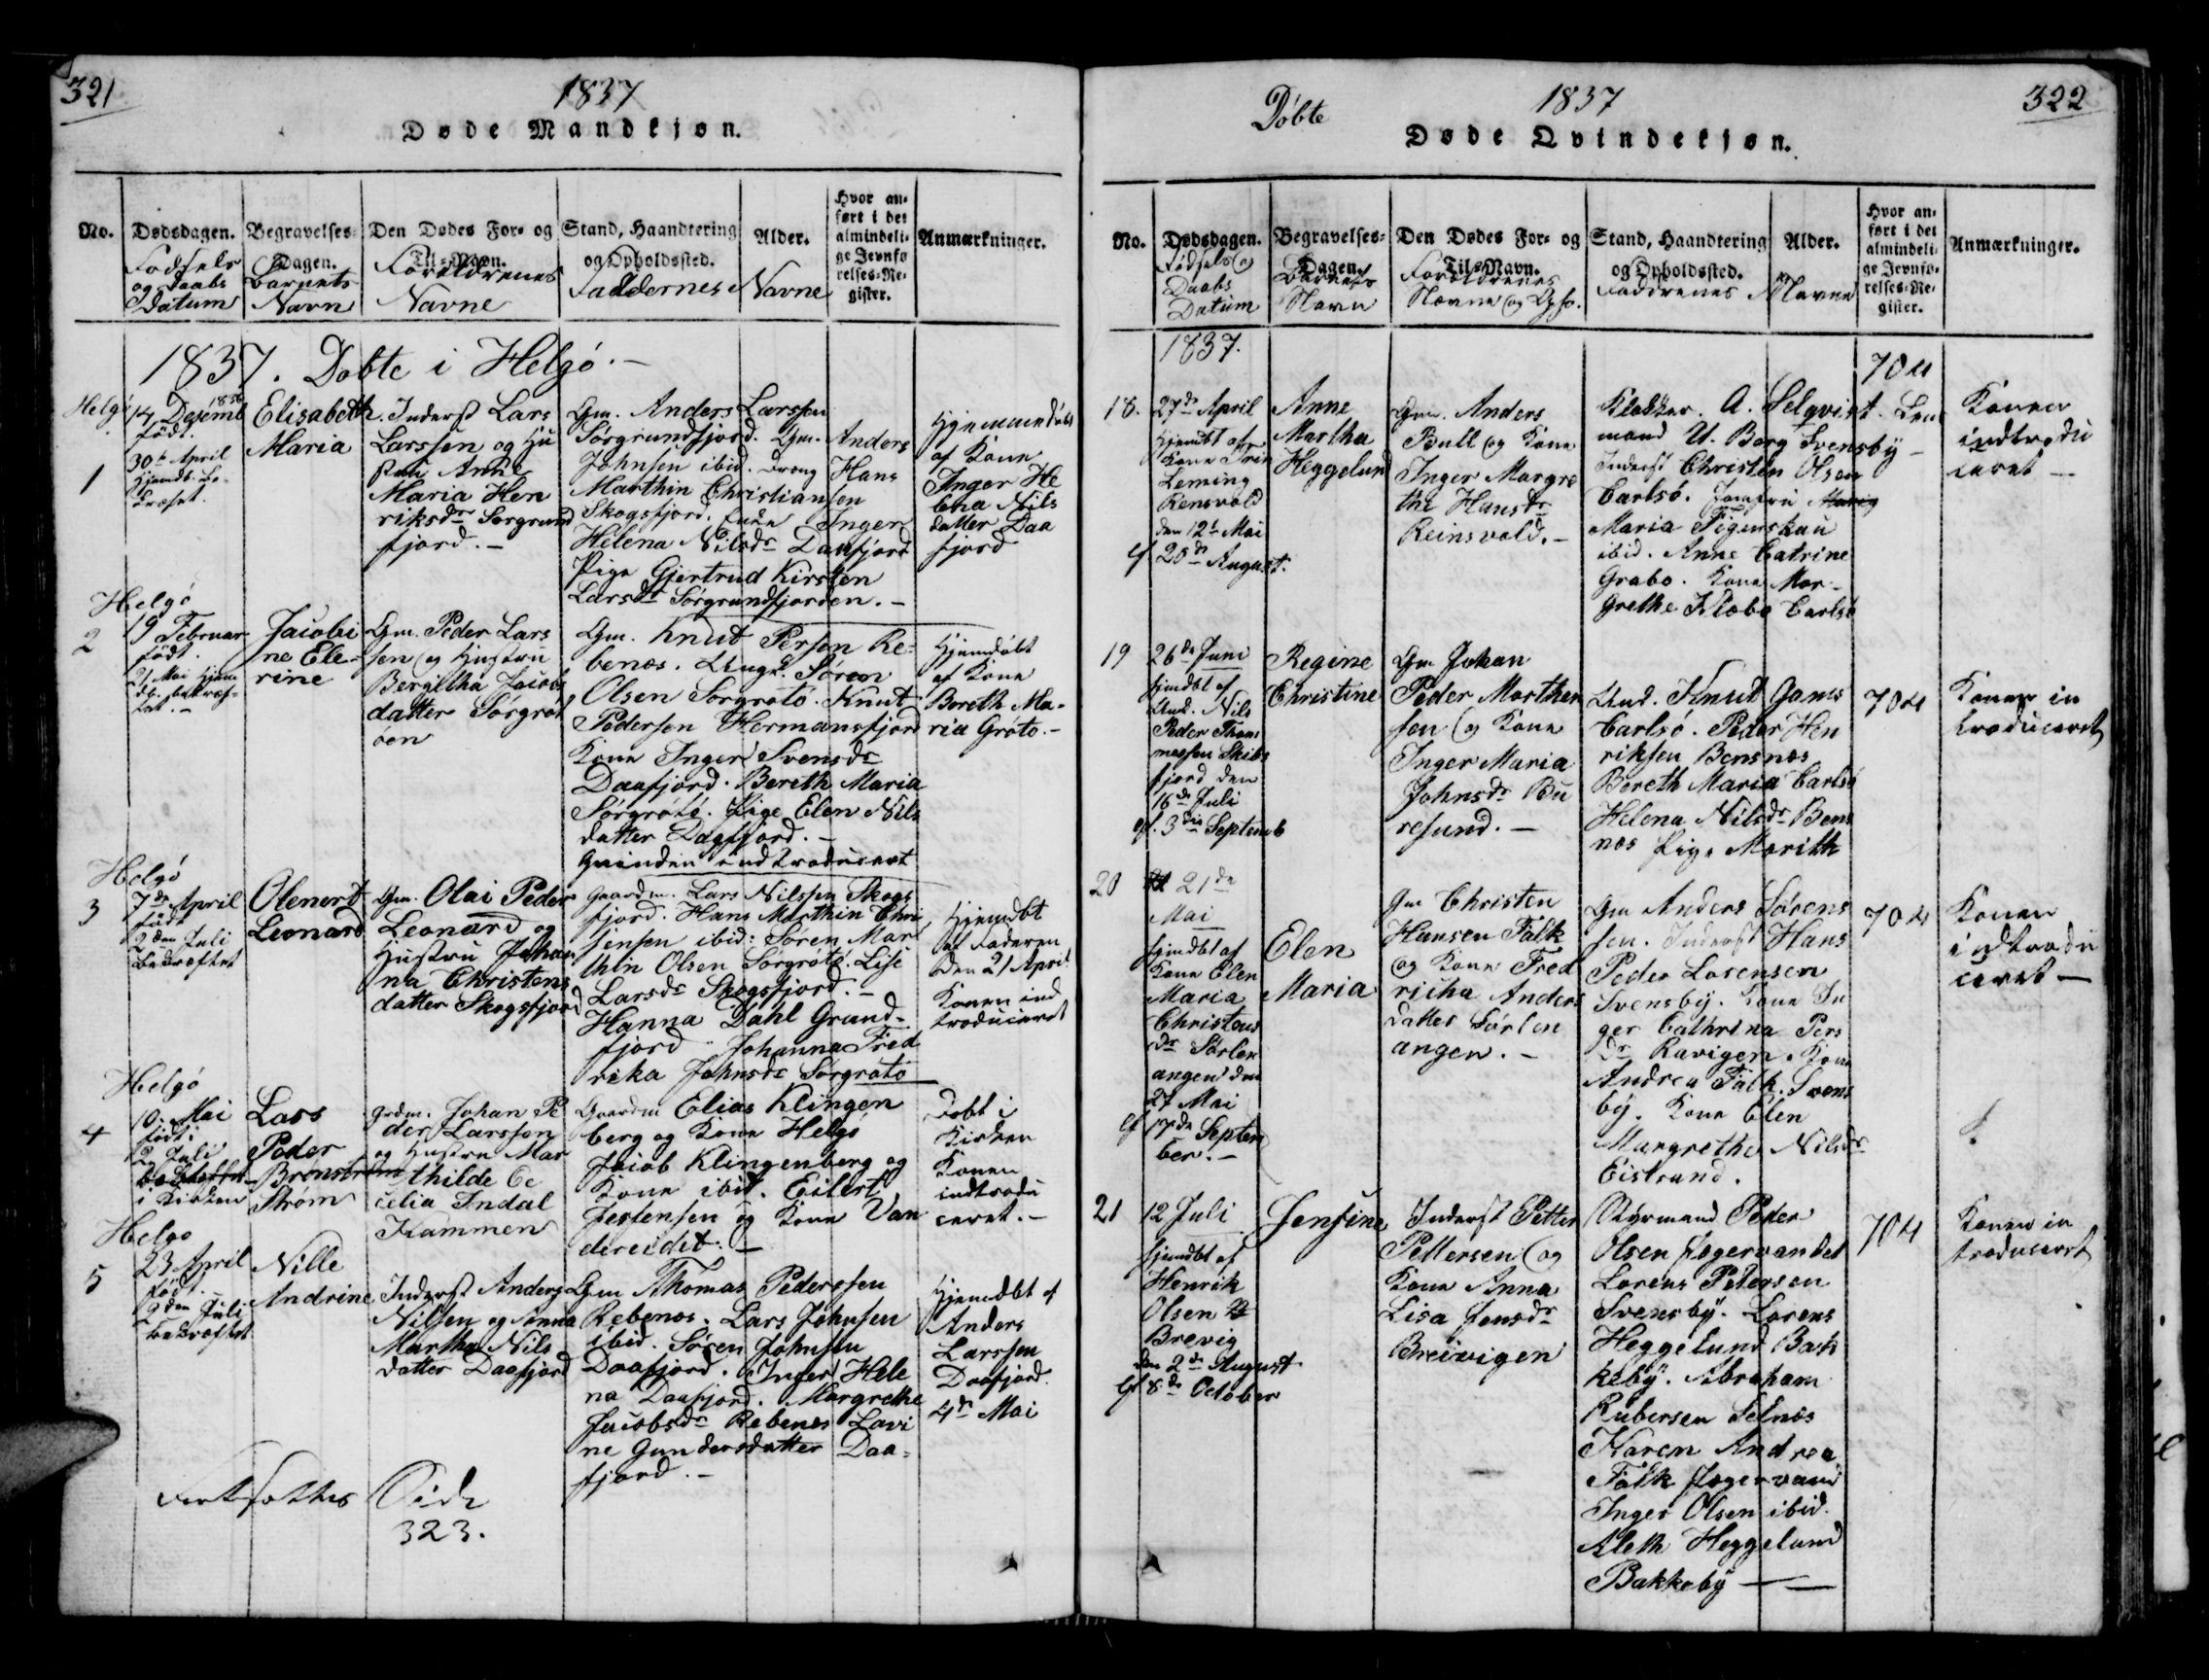 321
1837
Døde Mandkjøn.
No.
Dødsdagen.
Fødsels
og Daabs
Datum
Begravelses-
Dagen.
Barnets
Navn
Den Dødes For- og
Til-Navn.
Forældrenes
Navne
Stand, Haandtering
og Opholdssted.
Faddernes
Alder.
Navne
Hvor an-
ført i det
almindeli-
ge Jevnfø-
relses-Re-
gister.
Anmærkninger.
1837. Døbte i Helgö.-
Helgö
1
14 Desemb 1836
født.
30te April
hjemdb. be-
kræftet.
Elisabeth
Maria
Inderst Lars
Larssen og Hu
stru Anne
Maria Hen
riksdr Sørgrund
fjord.-
Gm. Anders Larssen
Sørgrundfjord. Gm. Anders
Johnsen ibid. Dreng Hans
Marthin Christiansen
Skogsfjord. Enke Inger
Helena Nilsdr Daafjord
Pige Gjertrud Kirsten
Larsdr Sørgrundfjorden.-
Hjemmedøbt
af Kone
Inger He
lena Nils
datter Daa
fjord
Helgö
2
19 Februar
født.
21 Mai hjem
db. bekræf-
tet.-
Jacobi
ne Ele-
rine
Gm. Peder Lars
sen og Hustru
Beritha Jacobs
datter Sørgröt
öen
Gm. Knud Persen Re-
benæs. Ungk. Sören
Olsen Sorgrötö. Knut
Pedersen Hermansfjord
Kone Inger Svensdr
Daafjord. Bereth Maria
Sörgrötö. Pige Elen Nils
datter Dagfjord.-
Qvinden introduceret
Hjemdøbt
af Kone
Bereth Ma-
ria Grötö.-
Helgö
3
7de April
født
9den Juli
bekræftet
Olenert
Leonard
Gm. Olai Peder
Leonard og
Hustru Johan
na Christens
datter Skogsfjord
Gaardm. Lars Nilssen Skogs
fjord. Hans Marthin Chri
stensen ibid: Søren Mar
thin Olsen Sørgrötö. Lise
Larsdr Skogsfjord.-
Hanna Dahl Grund-
fjord. Johanna Fred
rika Johnsdr Sørgrötö
Hjemdbt
af Faderen
den 21 April
Konen ind
troduceret
Helgö
4
10. Mai
født.
2 Juli
i Kirken
Lars
Peder
Strøm
Grdm. Johan Pe
der Larsson
og Hustru Mar
thilde Ce
celia Indal
Kammen
Gaardm Elias Klingen
berg og Kone Helgö
Jacob Klingenberg og
Kone ibid. Eilert
Jessensen og Kone Van
dereidet.-
Døbt i
Kirken
Konen
indtrodu
ceret.-
Helgö
5
23 April
født.
9den Juli
bekræftet
Nille
Andrine
Inderst Anders
Nilssen og Anna
Martha Nils
datter Daafjord
Gm Thomas Pederssen
Rebenæs. Lars Johnsen
ibid. Søren Johnsen
Daafjord. Inger Hele
na Daafjord. Margrethe
Jacobsdr Rebenes Lavi
ne Gundersdatter Daa-
fjord.-
Hjemdbt af
Anders
Larssen
Daafjord.
4de Mai
Fortsættes Side
323.
Döbte
1837
322
Døde Qvindekjøn.
No.
Dødsdagen.
Fødsels og
Daabs
Datum
Begravelses-
Dagen.
Barnets
Navn
Den Dødes For- og
Til-Navn.
Forældrenes
Navne og Opho.
Stand, Haandtering
og Opholdssted.
Faddrenes
Alder.
Navne
Hvor an-
ført i det
almindeli-
ge Jevnfø-
relses-Re-
gister.
Anmærkninger.
1837.
18.
27de April
hjemdbt af
Kone Trin
Leming
Rensvold
den 12t Mai
cf 20de August.
Anne
Martha
Heggelund
Gm. Anders
Bull og Kone
Inger Margre
the Hansdr
Reinsvold.-
Klokker. A. Selqvist. Len
mand U. Berg Svensby-
Inderst Christen Olsen
Carlsö. Jomfru
Maria Figenskau
ibid. Anne Catrine
Grabo. Kone Mar-
grethe Klæbo Carlsö
704
Konen
indtrodu
ceret-
19
26de Juni
hjemdbt af
Und. Nils
Peder Thom
mesen Skibs
fjord den
16de Juli
cf. 3die Septemb
Regine
Christine
Gm Johan
Peder Marthen
sen og Kone
Inger Maria
Johnsdr Bu
resund.-
Und. Knut Gams
Carlsö. Peder Hen
riksen Bensnæs
Bereth Maria Carlsö
Helena Nilsdr Bens
næs Pige Marith
704
Konen in
troduceret
20
21de
Mai
hjemdbt af
Kone Elen
Maria
Christens
dr Sørlen
angen den
27 Mai
cf 17de Septem
ber.-
Elen
Maria
Gm Christen
Hansen Falk
og Kone Fred
richa Anders
datter Sörlen
angen.-
Gm Anders Sörens
sen. Inderst Hans
Peder Lorensen
Svensby. Kone In
ger Cathrina Pers
dr Ravigen. Kone
Andrea Falk. Svens
by. Kone Elen
Margrethe Nilsdr
Eistrand.
704
Konen
indtrodu
ceret-
21
12 Juli
hjemdbt af
Henrik
Olsen
Brevig
den 2de August
cf 8de October
Jensine
Inderst Petter
Pettersen og
Kone Anna
Lisa Jensdr
Breivigen
Styrmand Peder
Olsen Jægervandet
Lorens Petersen
Svensby. Lorens
Heggelund Bak
keby. Abraham
Rubersen Selnæs
Karen Andrea
Falk Jægervand
Inger Olsen ibid.
Aleth Heggelund
Bakkeby-
704
Konen in
troduceret